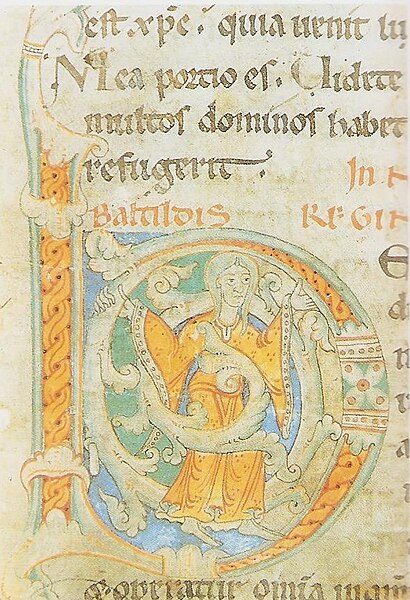 est xpe. quia uenit lu
Mea portio es. Uidete
multos dominos habet
refugerit.
In t
Baltildis REGI
operatur omnia